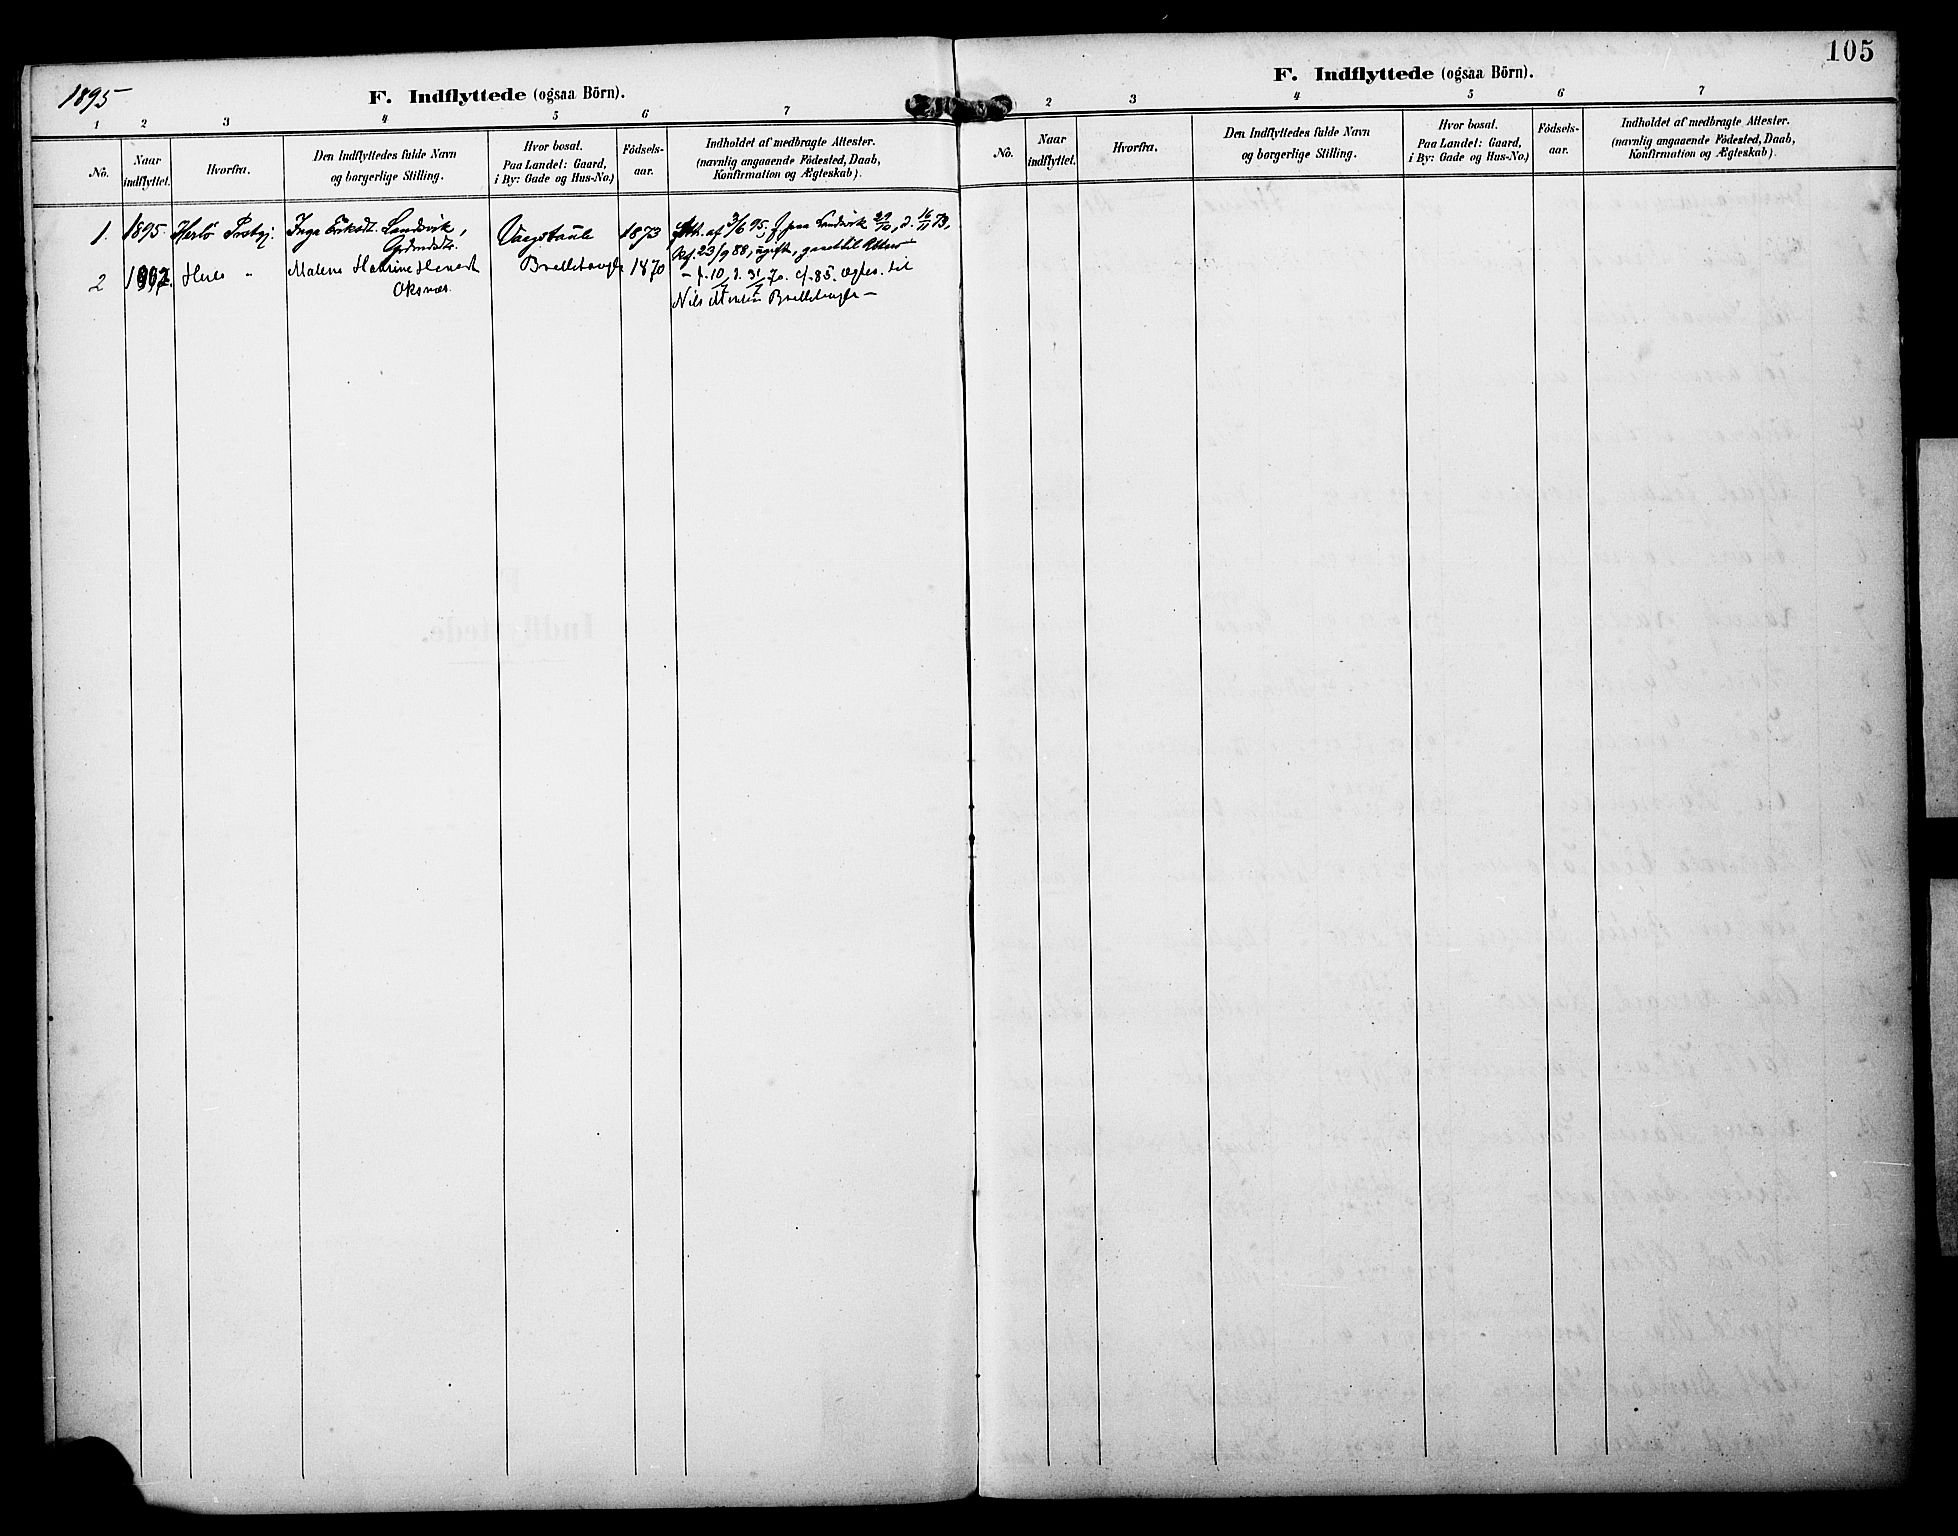 1895
F. Indflyttede (ogsaa Börn).
1 2 3 4 5 6 7
No.
Naar
indflyttet.
Hvorfra.
Den Indflyttedes fulde Navn
og borgerlige Stilling.
Hvor bosat.
Paa Landet: Gaard,
i By: Gade og Hus-No.)
Födsels-
aar.
Indholdet af medbragte Attester.
(navnlig angaaende Födested, Daab,
Konfirmation og Ægteskab).
1. 1895. Herlö Prstgj. Inga Eriksdt. Landsvik, Vaagstaule 1873 Att. af 3/6 95. f paa Landsvik 29/10, d. 16/11 73,
Kf. 23/9 88, ugift, gaaet til Alters
2 Herlö " Malene Hansine 1870 - f. 10/7 d. 31/7 70. cf. 85. Ægtes. til
Oksnæs. Nils
105
F. Indflyttede (ogsaa Börn).
2 3 4 5 6 7
No.
Naar
indflyttet.
Hvorfra.
Den Indflyttedes fulde Navn
og borgerlige Stilling.
Hvor bosat.
Paa Landet: Gaard,
i By: Gade og Hus-No.)
Födsels-
aar.
Indholdet af medbragte Attester.
(navnlig angaaende Födested, Daab,
Konfirmation og Ægteskab).